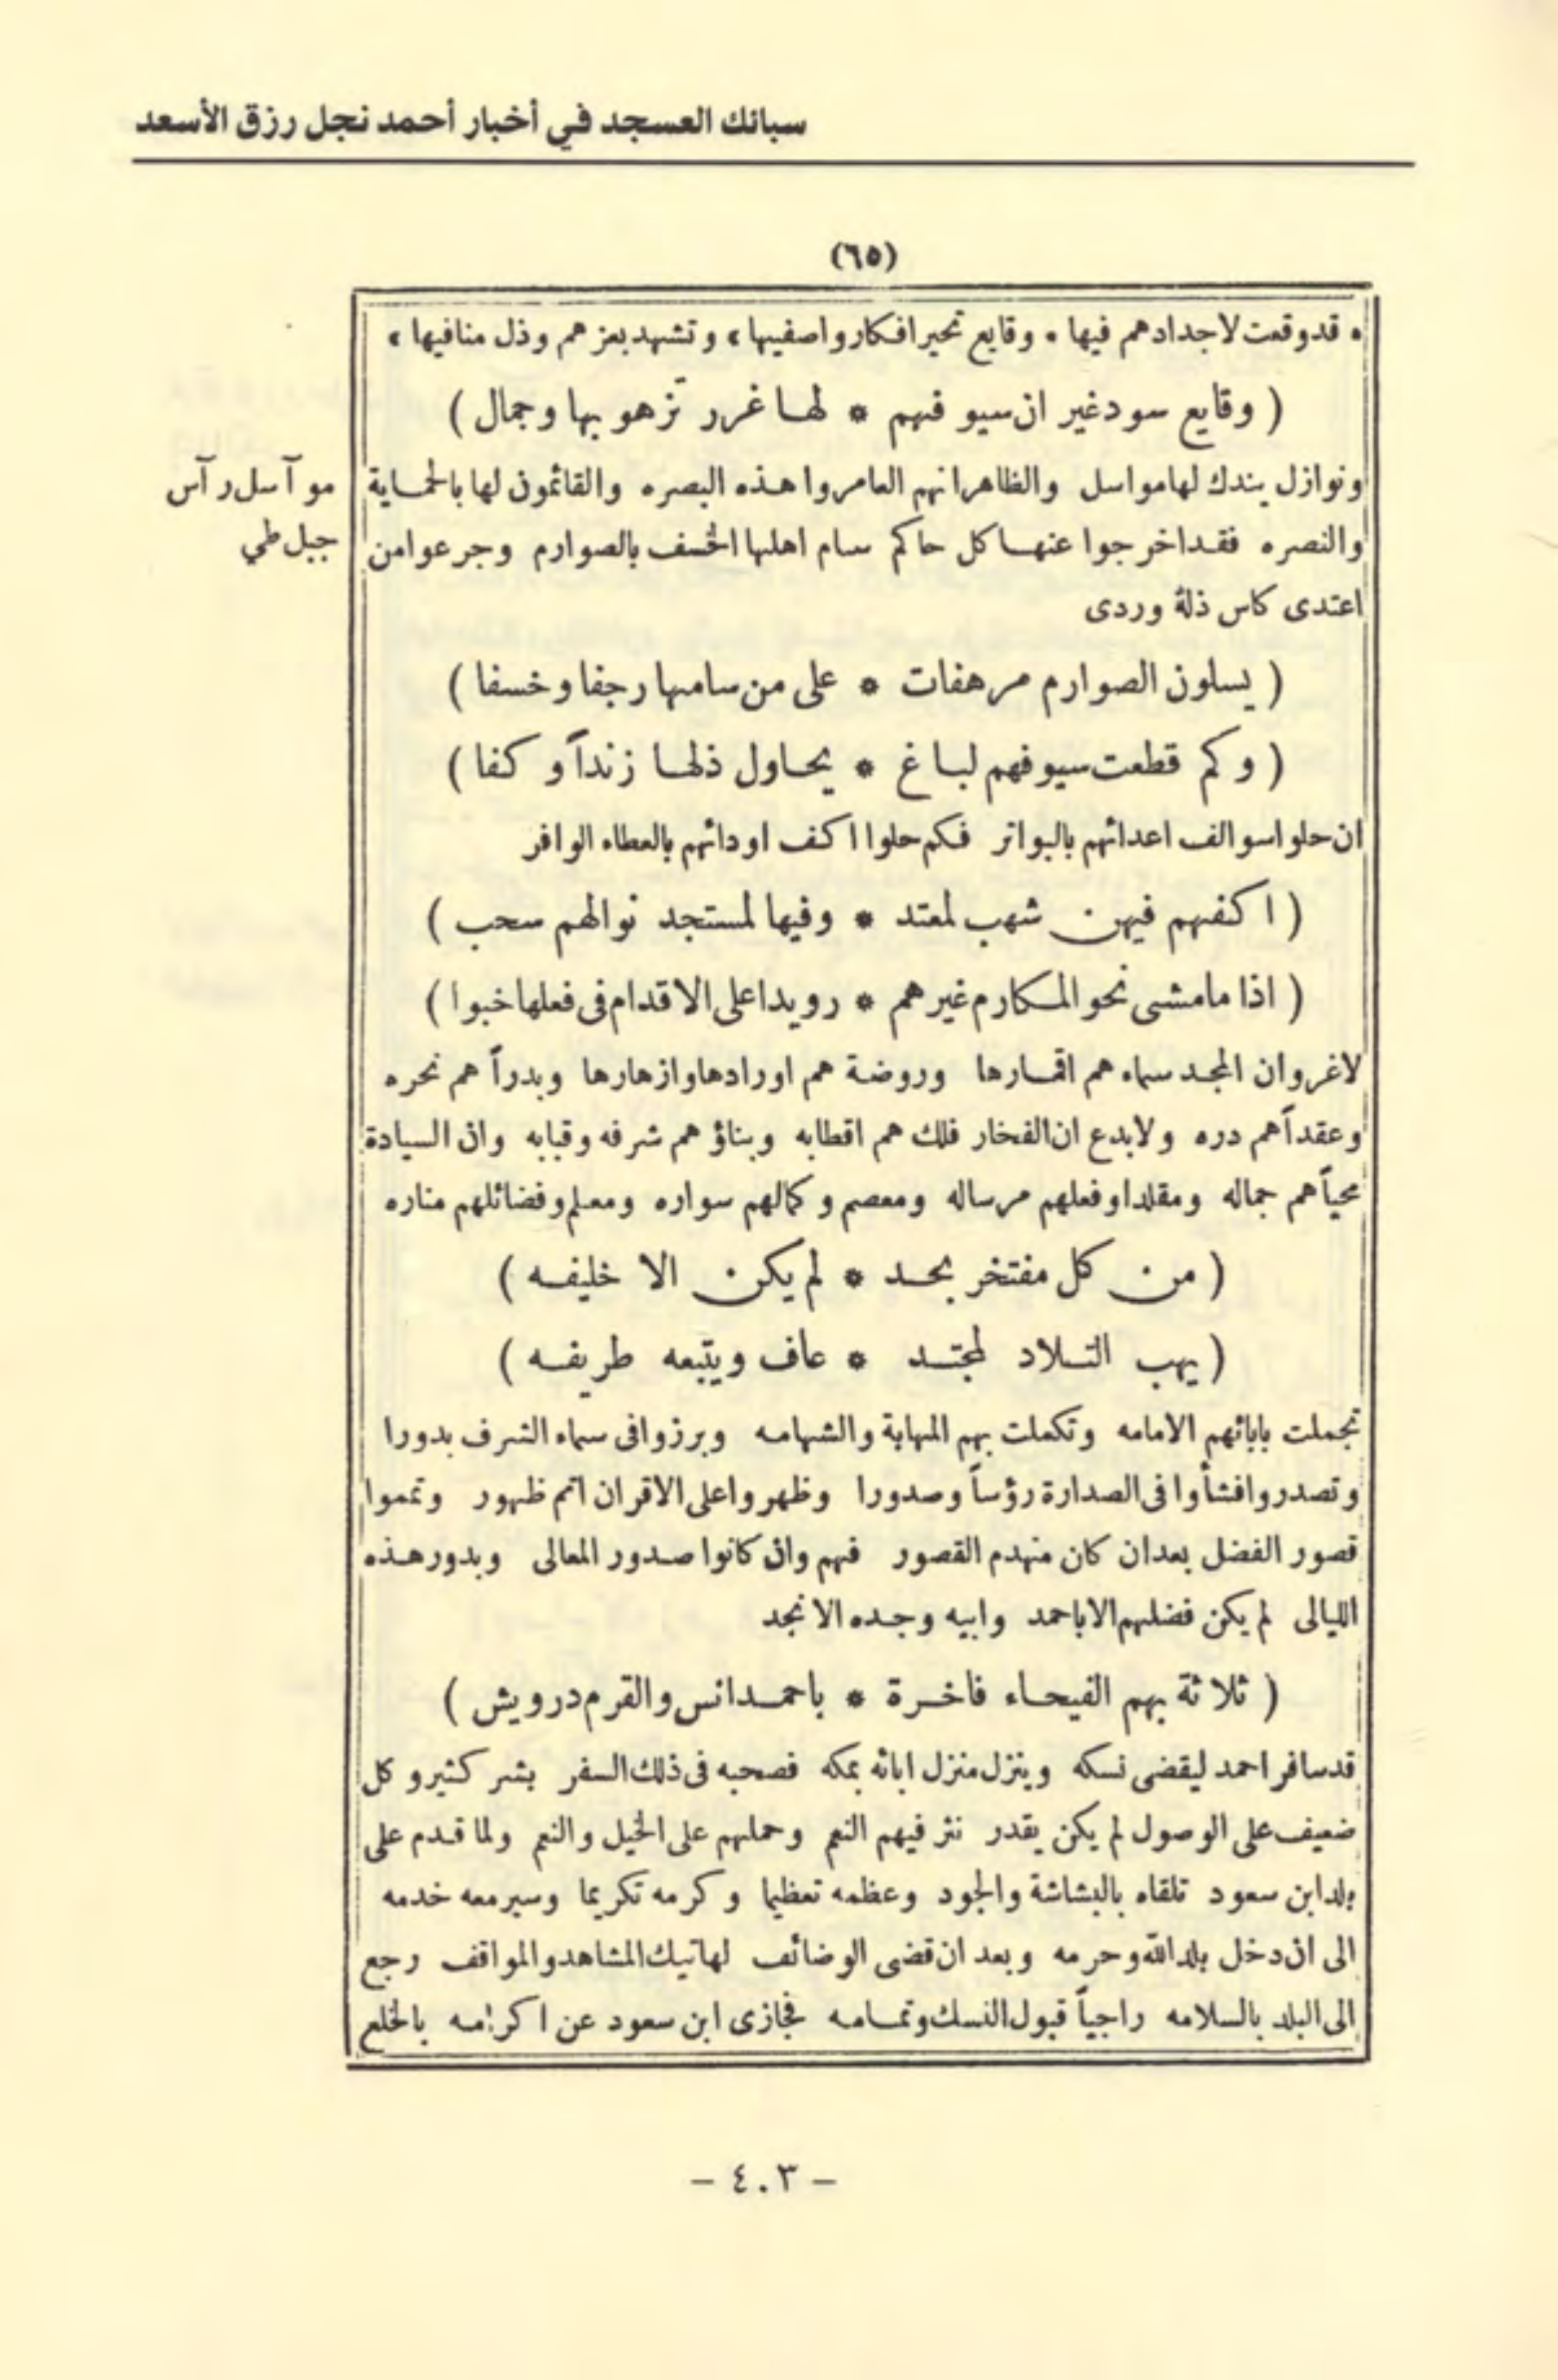 سبائك العسجد في أخبار أحمد نجل رزق الأسعد
(٦٥)
* قد وقعت لاجدادهم فيها * وقايع تحير افكار واصفيها * وتشهد بعزهم وذل منافيها *
( وقايع سود غير ان سيوفهم * لها غرر تزهو بها وجمال )
ونوازل يندك لها مواسل والظاهر انهم العامروا هذه البصره والقائمون لها بالحماية
موآسل رآس
جبل طي
والنصره فقد اخرجوا عنها كل حاكم سام اهلها الخسف بالصوارم وجرعوا من
اعتدى كاس ذلة وردى
( يسلون الصوارم مرهفات * على من سامها رجفا وخسفا )
( وكم قطعت سيوفهم لباغ * يحاول ذلها زنداً وكفا )
ان حلوا سوالف اعدائهم بالبواتر فكم حلوا اكف اودائهم بالعطاء الوافر
( اكفهم فيهن شهب لمعتد * وفيها لمستجد نوالهم سحب )
( اذا ما مشى نحو المكارم غيرهم * رويدا على الاقدام فى فعلها خبوا )
لاغرو ان المجد سماء هم اقمارها وروضة هم اورادها وازهارها وبدراً هم نحره
وعقداً هم دره ولابدع ان الفخار فلك هم اقطابه وبناؤ هم شرفه وقبابه وان السيادة
محياً هم جماله ومقلدا وفعلهم مرساله ومعصم وكمالهم سواره ومعلم وفضائلهم مناره
( من كل مفتخر بحد * لم يكن الا خليفه )
( يهب التلاد لمجتد * عاف ويتبعه طريفه )
تجملت بابائهم الامامه وتكملت بهم المهابة والشهامه وبرزوا فى سماء الشرف بدورا
وتصدروا فنشأوا فى الصدارة رؤساً وصدورا وظهروا على الاقران اتم ظهور وتمموا
قصور الفضل بعد ان كان منهدم القصور فهم وان كانوا صدور المعالى وبدور هذه
الليالى لم يكن فضلهم الا باحمد وابيه وجده الانجد
( ثلاثة بهم الفيحاء فاخرة * باحمد انس والقرم درويش )
قد سافر احمد ليقضى نسكه وينزل منزل ابائه بمكه فصحبه فى ذلك السفر بشر كثير وكل
ضعيف على الوصول لم يكن يقدر نثر فيهم النعم وحملهم على الخيل والنعم ولما قدم على
بلد ابن سعود تلقاه بالبشاشة والجود وعظمه تعظيما وكرمه تكريما وسير معه خدمه
الى ان دخل بلد الله وحرمه وبعد ان قضى الوضائف لهاتيك المشاهد والمواقف رجع
الى البلد بالسلامه راجياً قبول النسك وتمامه فجازى ابن سعود عن اكرامه بالخلع
- ٤٠٣ -